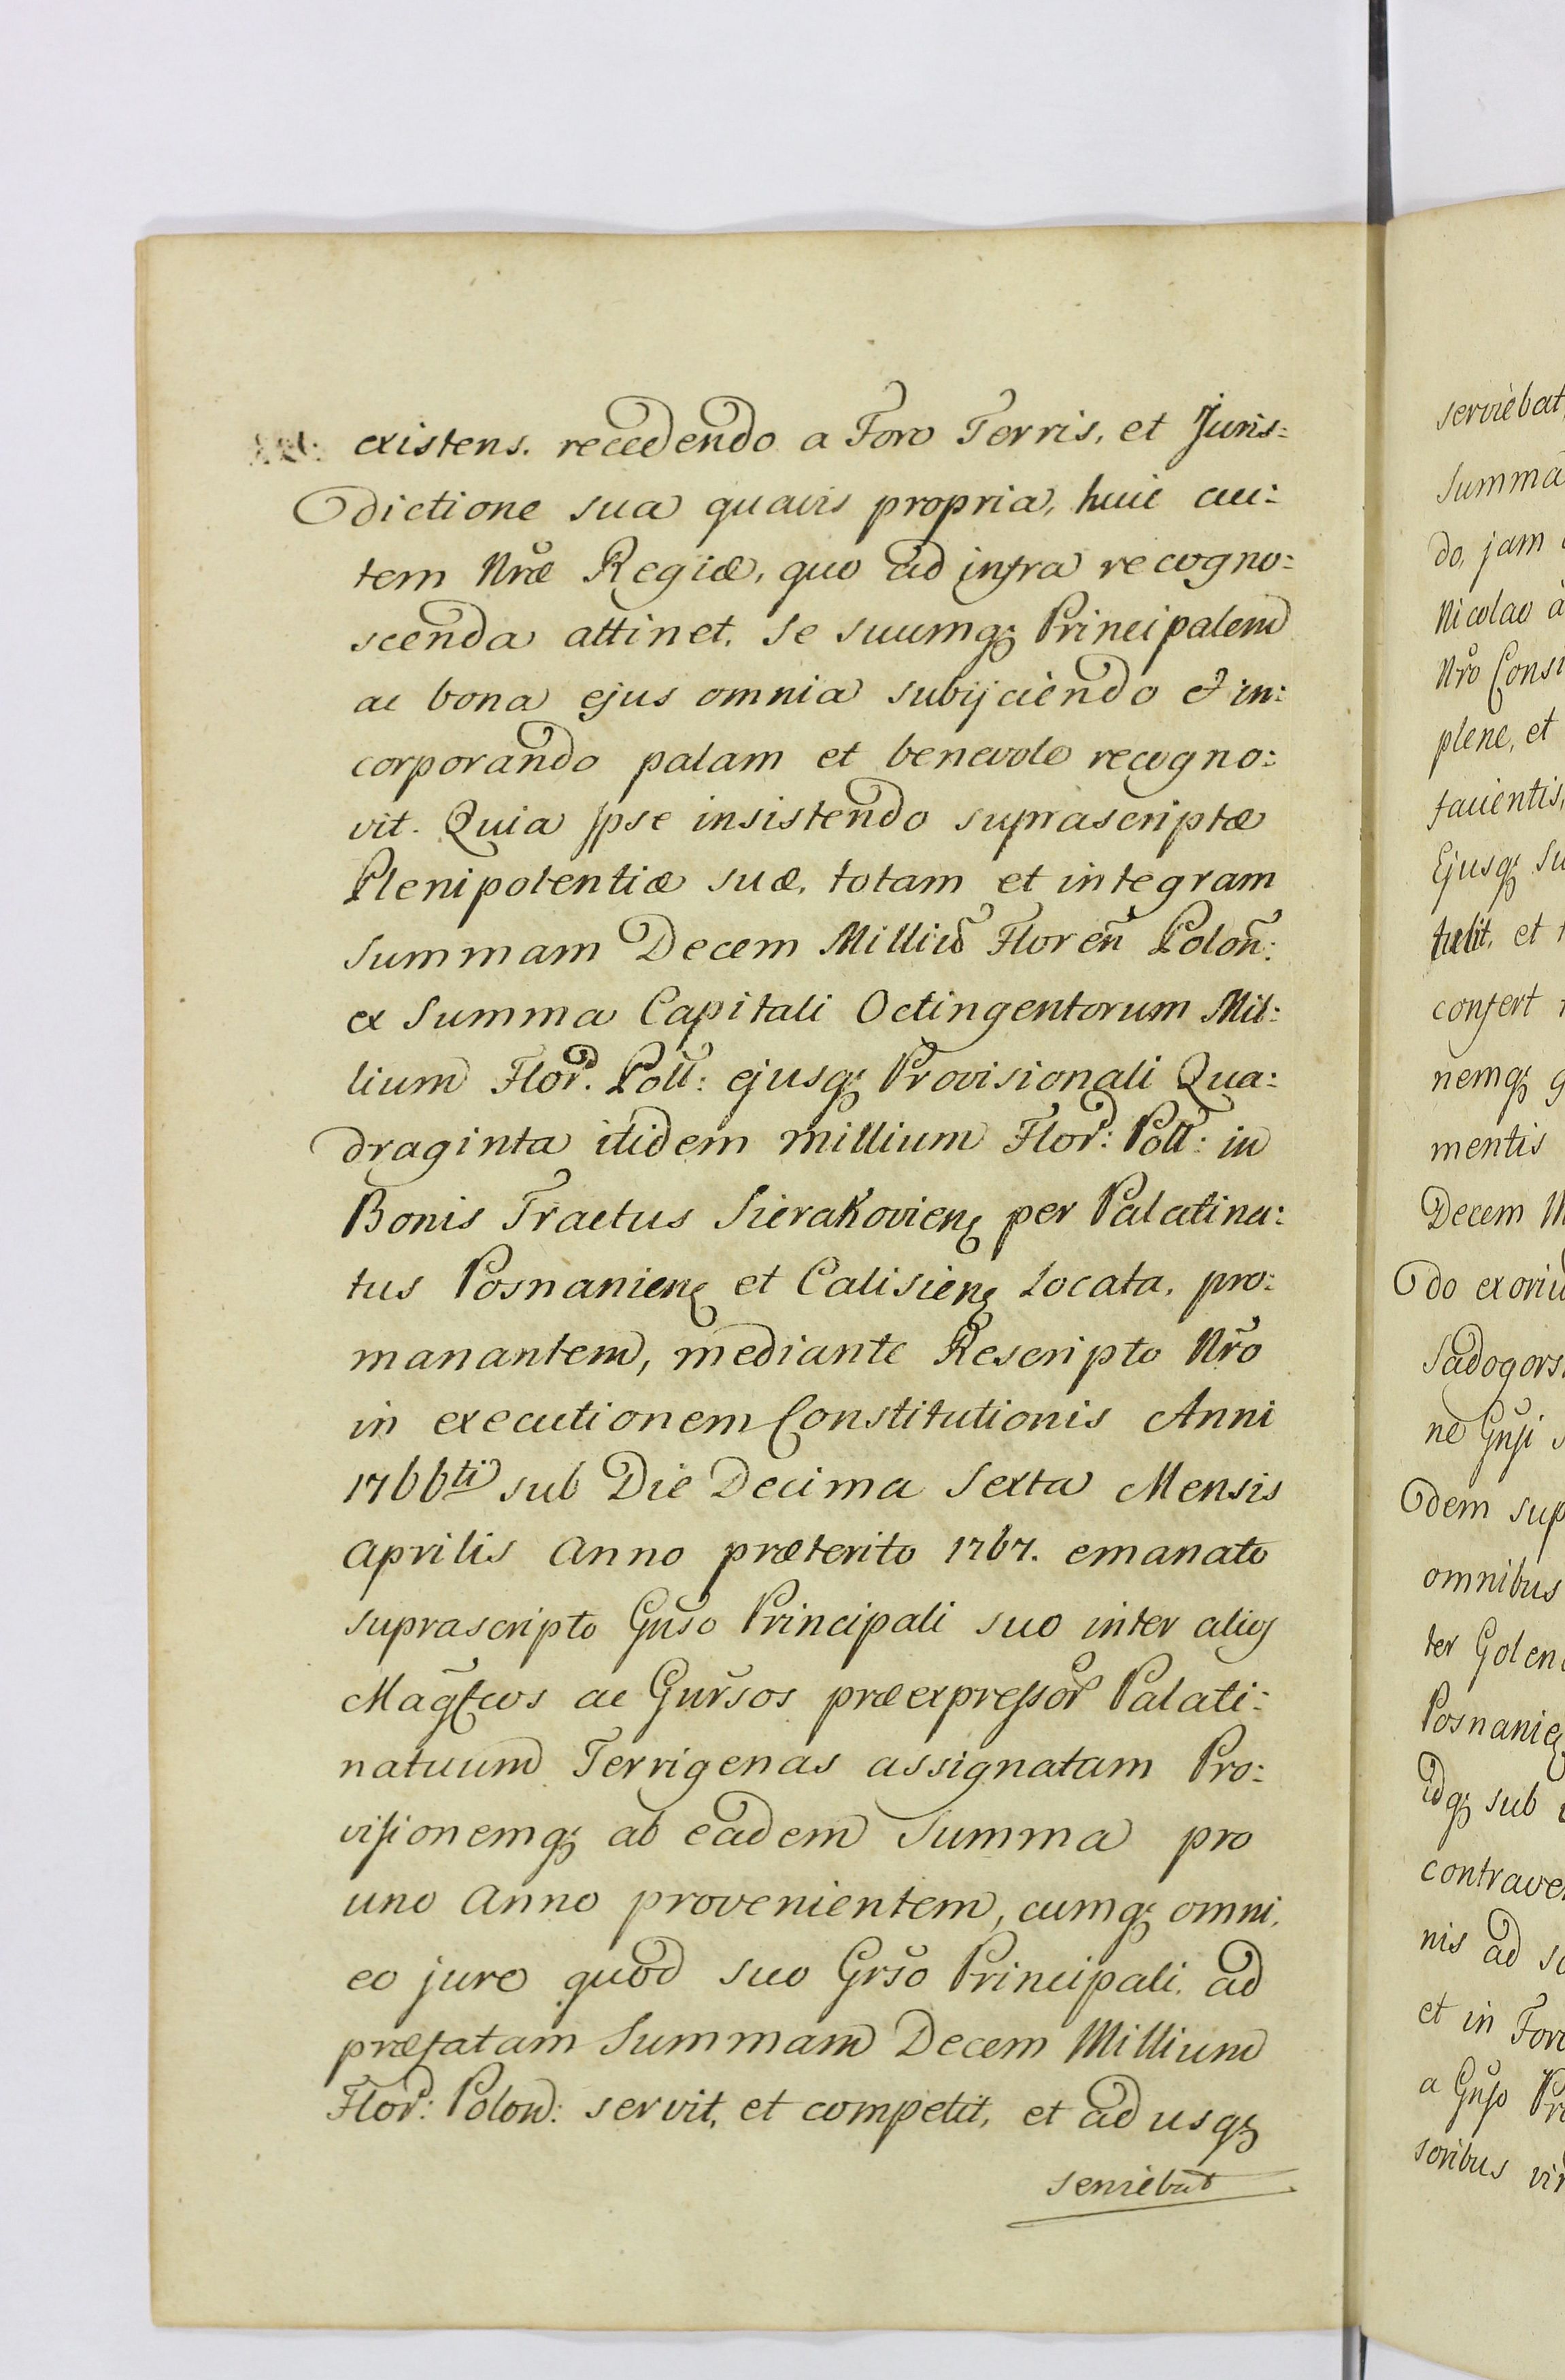 existens. recedendo a Foro Terris, et Juris=
dictione sua quavis propria, huic au=
tem Nr̃æ Regiæ, quo ad infra recogno=
scenda attinet, se suumq; Principalem
ac bona ejus omnia subijciendo et in=
corporando palam et benevole recogno=
vit. Quia Ipse insistendo suprascriptæ
Plenipotentiæ suæ, totam et integram
Summam Decem Milliũ Floreñ Poloñ:
ex Summa Capitali Octingentorum Mil=
lium Flor. Poll: ejusq; Provisionali Qua=
draginta itidem millium Flor: Poll: in
Bonis Tractus Sierakovien. per Palatina=
tus Posnanien. et Calisien. Locata, pro=
manantem, mediante Rescripto Nr̃o
in executionem Constitutionis Anni
1766ti sub Die Decima Sexta Mensis
Aprilis Anno præterito 1767. emanato
suprascripto Gñso Principali suo inter alios
Magcos ac Gnrsos præexpressor Palati=
natuum Terrigenas assignatam Pro=
visionemq; ab eadem Summa pro
uno Anno provenientem, cumq; omni,
eo jure quod suo Grso Principali, ad
præfatam Summam Decem Millium
Flor: Polon: servit, et competit, et ad usq;
serviebat
serviebat
Summa
do, jam
Nicolao à
Nr̃o Consi
plene, et
facientis,
Ejusq; Su
tulit, et
confert
nemq; g
mentis
Decem M
do exoriu
Sadogors
ne Gñsi
dem sup
omnibus
ter Golen
Posnanie
idq; sub
contrave
nis ad so
et in Foro
a Gñso Pr
soribus vi